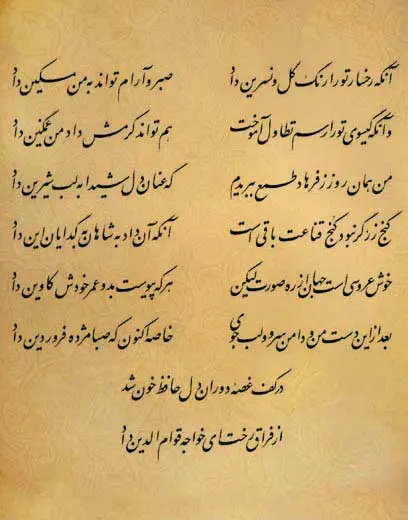 آنکه رخسار تو را رنگ گل و نسرین داد صبر و آرام تواند به من مسکین داد
وآنکه گیسوی تو را رسم تطاول آموخت هم تواند کرمش داد من غمگین داد
من همان روز ز فرهاد طمع ببریدم که عنان دل شیدا به لب شیرین داد
گنج زر گر نبود کنج قناعت باقی است آنکه آن داد به شاهان به گدایان این داد
خوش عروسی است جهان از ره صورت لیکن هر که پیوست بدو عمر خودش کاوین داد
بعد از این دست من و دامن سرو و لب جوی خاصه اکنون که صبا مژده فروردین داد
در کف غصه دوران دل حافظ خون شد
از فراق رخت ای خواجه قوام الدین داد